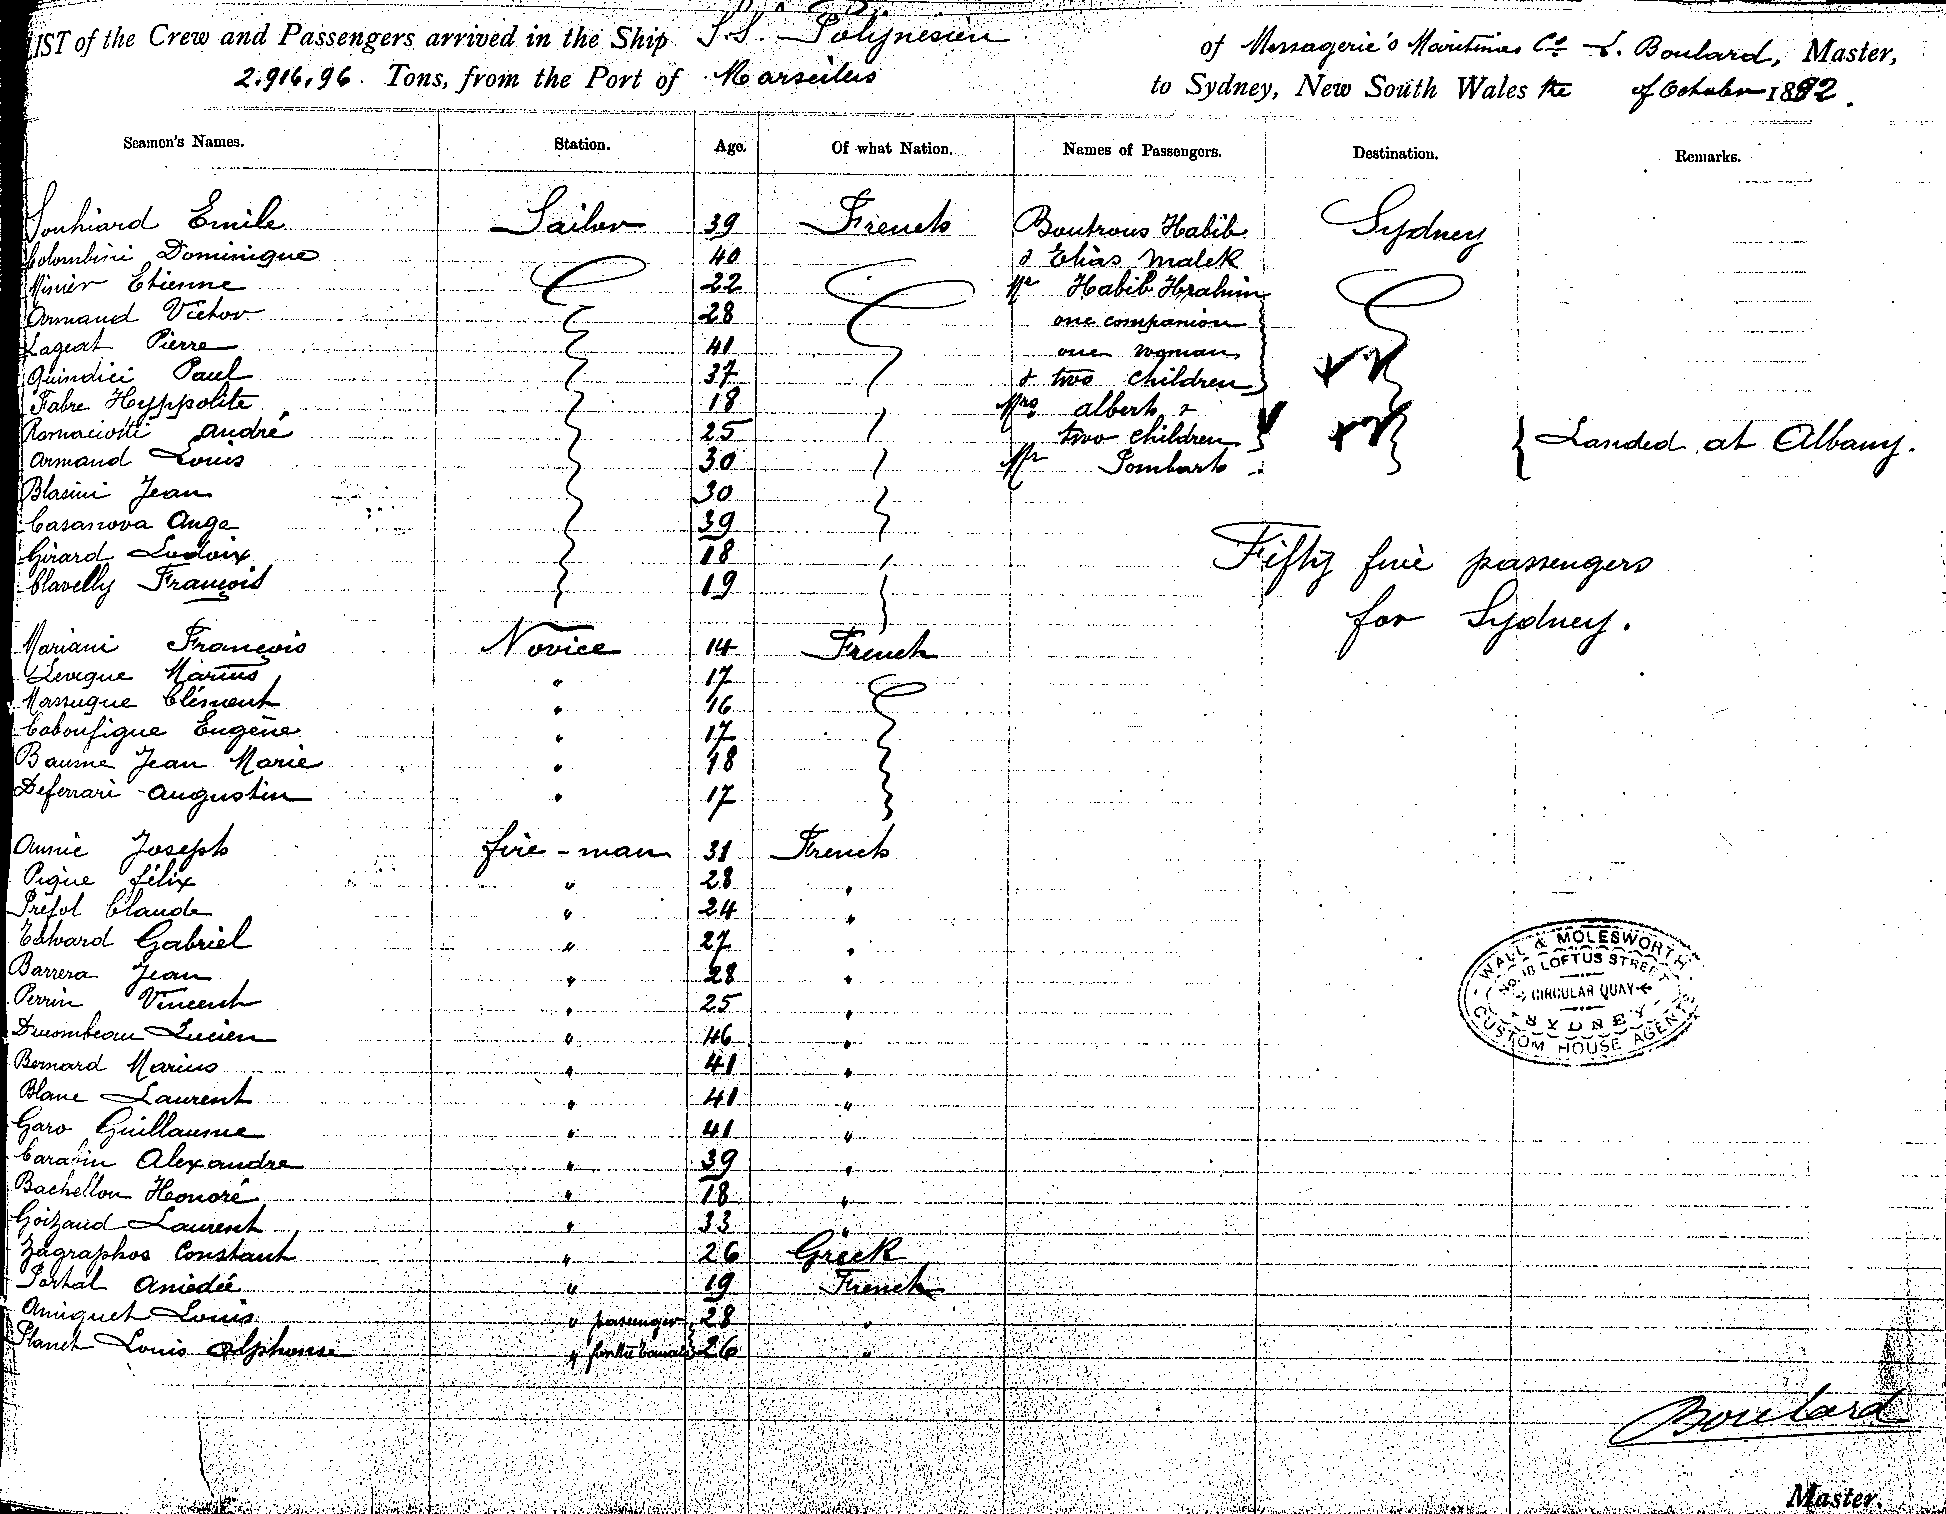 LIST of the Crew and Passengers arrived in the Ship S.S. Polynesien of Messagerie's Maritimes Co L. Boulard, Master,
2.916,96. Tons, from the Port of Marseilles to Sydney, New South Wales the of October 1892.
Seamen's Names. Station. Age. Of what Nation. Names of Passengers. Destination. Remarks.
Emile Sailor 39 French Boutrous Habib Sydney
Colombini Dominique 40 & Elias Malek
Minier Etienne 22 Mr Habib Hrahim
Armand Victor 28 one companion
Lageat Pierre 41 one woman
Quindici Paul 37 & two children
Fabre Hyppolite 18 Mrs Albert &
Ramaciotti André 25 two children Landed at Albany.
Armand Louis 30 Mr Lombart
Blasini Jean 30
Casanova Ange 39
Girard Ludoix 18 Fifty five passengers
Clavelly François 19 for Sydney.
Mariani François Novice 14 French
Leveque Marius " 17
Massugue Clément " 16
Caboufigue Eugène " 17
Baume Jean Marie " 18
Deferrari Augustin " 17
Aunie Joseph fire-man 31 French
Pigne félix " 28 "
Prefol Claude " 24 "
Edward Gabriel " 27 "
Barrera Jean " 28 "
Perrin Vincent " 25 "
Ducombeau Lucien " 46 "
Bernard Marius " 41 "
Blanc Laurent " 41 "
Garo Guillaume " 41 "
Carafin Alexandre " 39 "
Bachellou Honoré " 18 "
Goizaud Laurent " 33 "
Zagraphos Constant " 26 Greek
Portal Amédée " 19 French
Amiguet Louis " passenger 28 "
Planet Louis Alphonse " 26 "
WALL & MOLESWORTH
No. 18 LOFTUS STREET
CIRCULAR QUAY
SYDNEY
CUSTOM HOUSE AGENTS
Boulard
Master.